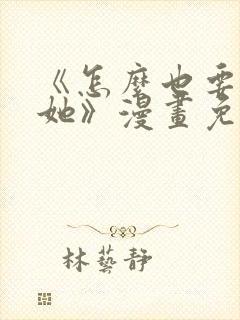 《怎麼也要
她》漫畫免
林藝靜